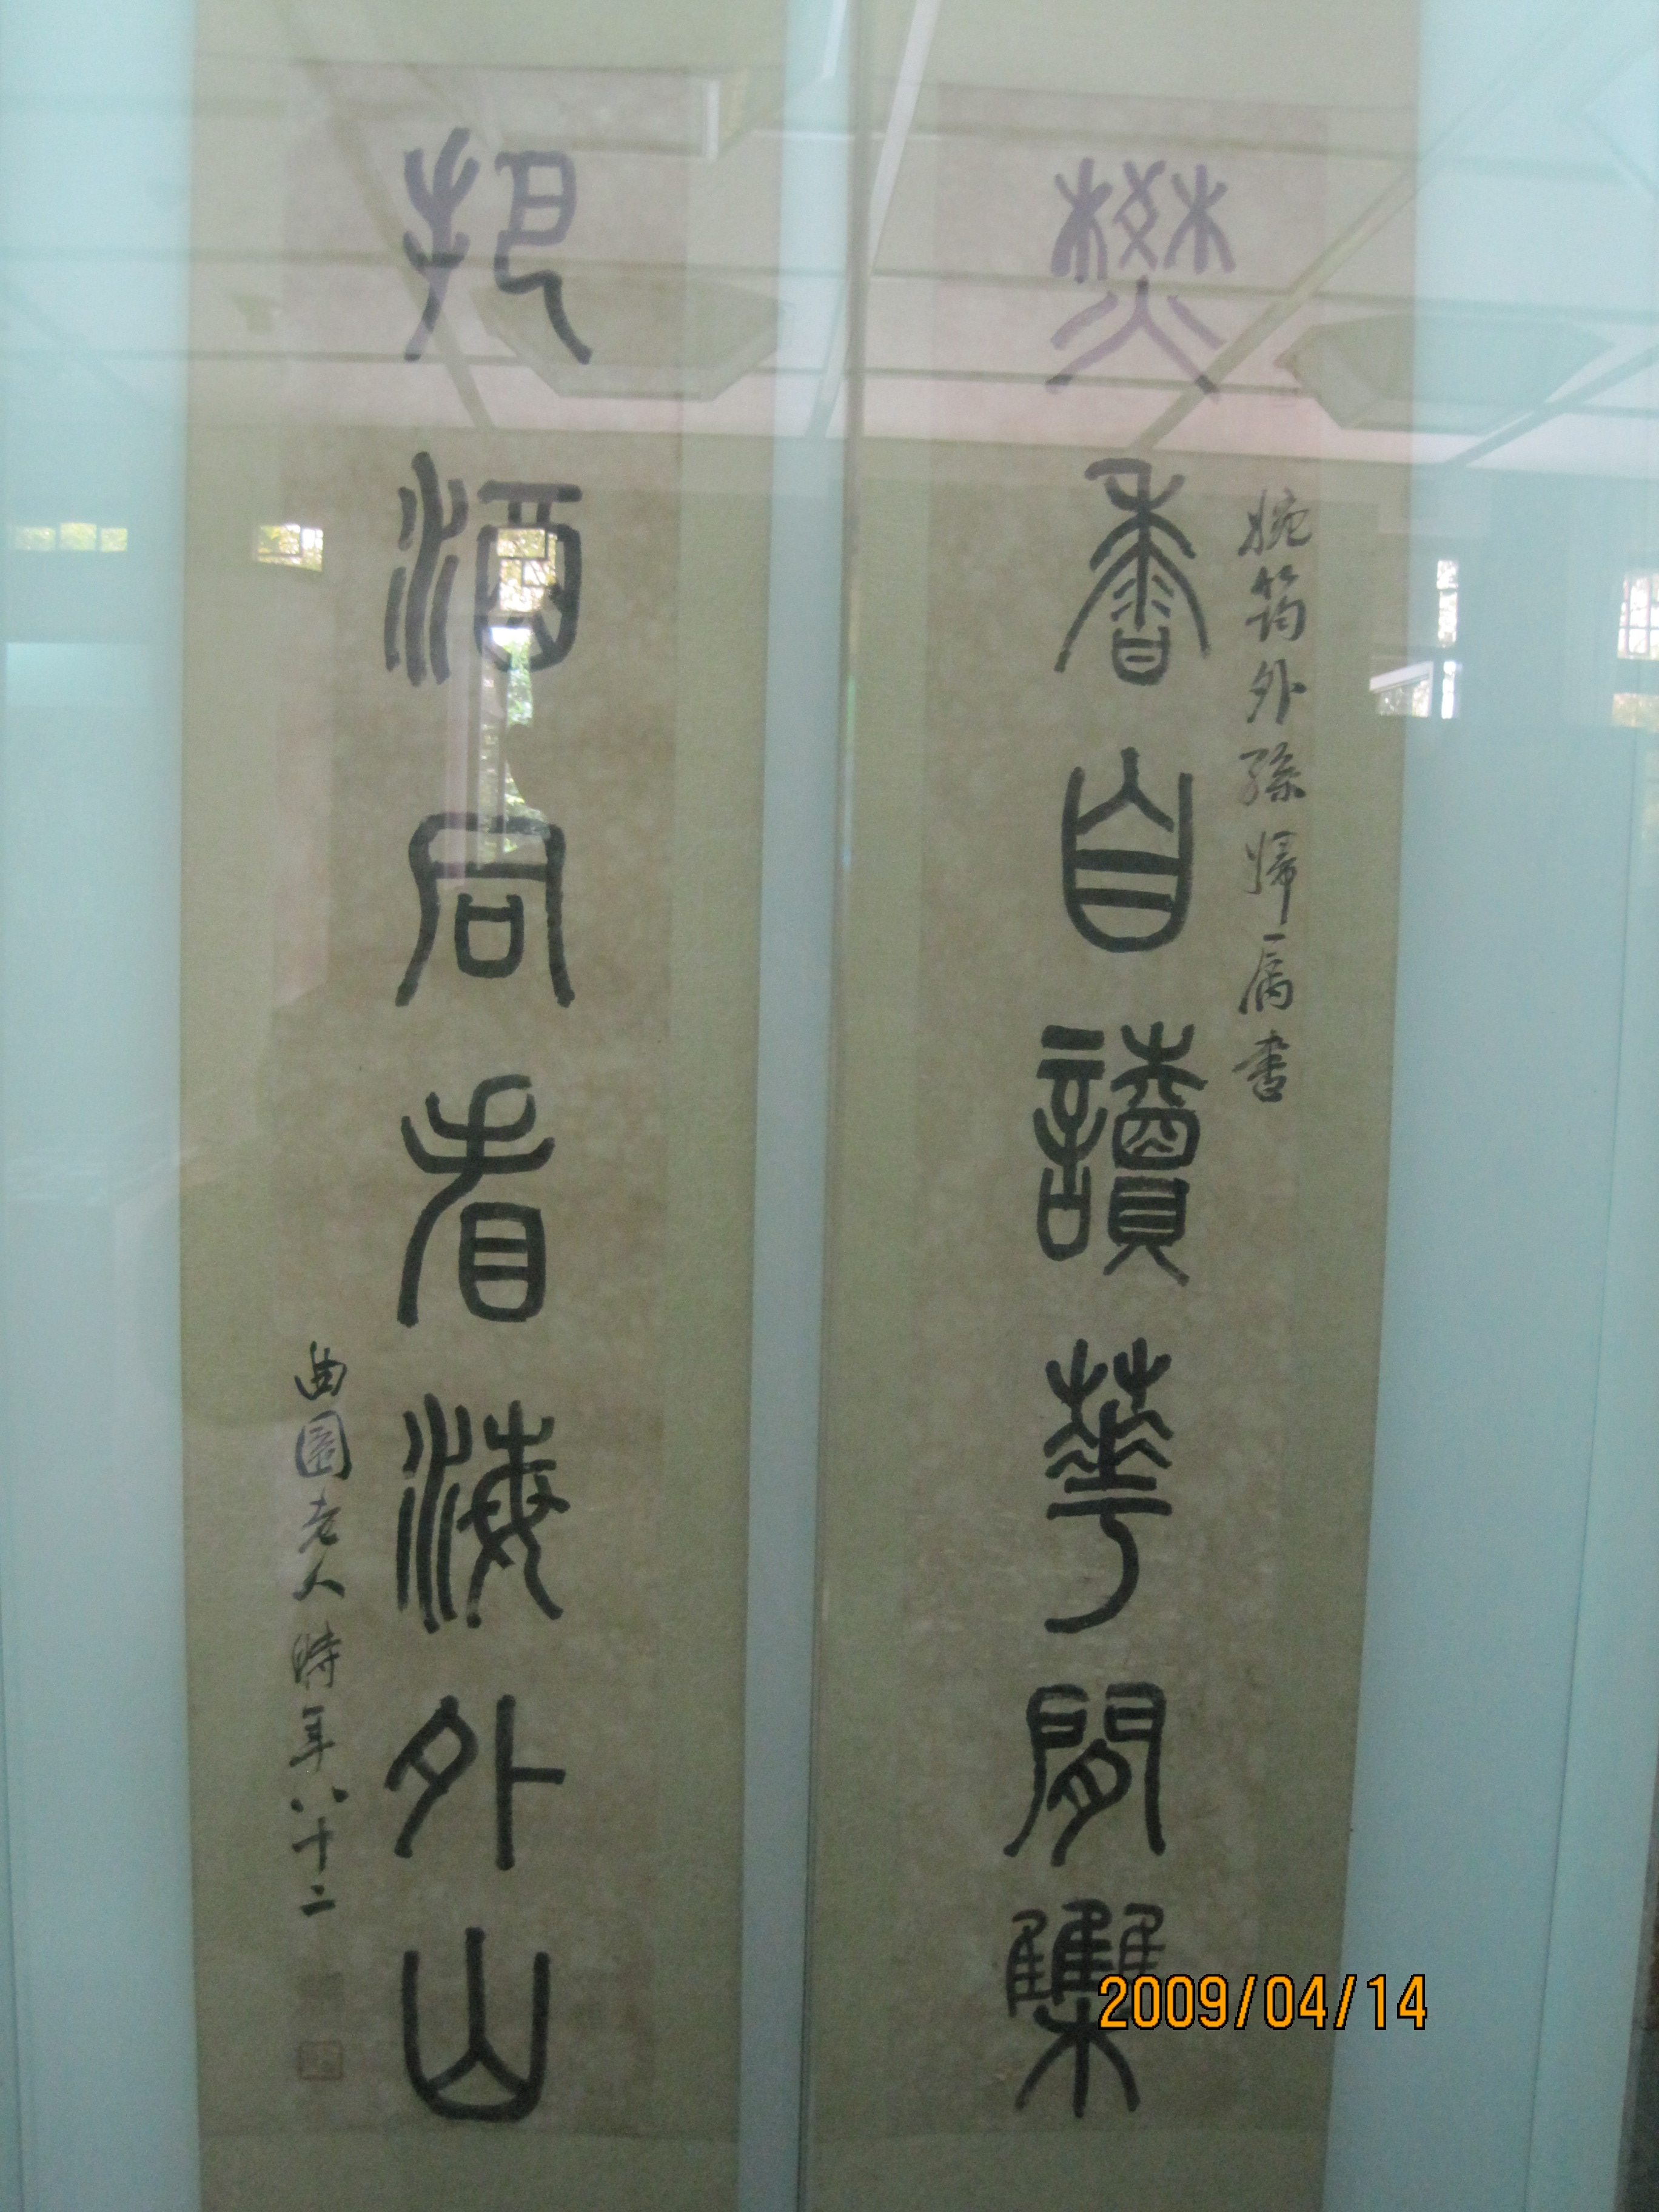 焚香自讀華閒集
婉筠外孫婦属書
把酒同看海外山
曲園老人時年八十二
2009/04/14